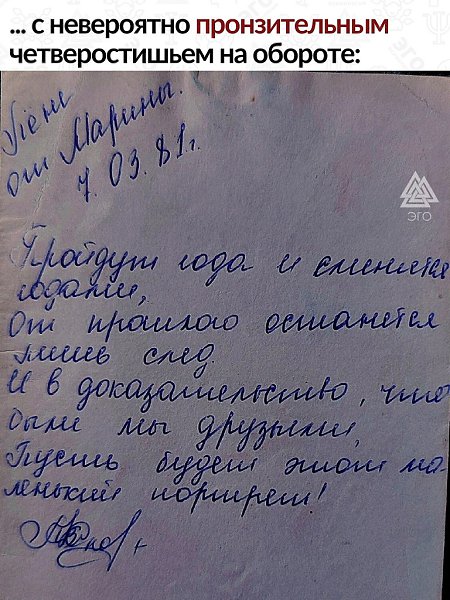 ... с невероятно пронзительным
четверостишьем на обороте:
от Марины.
7. 03. 81г.
эго
Пройдут года и сменятся
годами,
От прошлого останется
лишь след.
И в доказательство, что
были мы друзьями,
Пусть будет этот ма-
ленький портрет!